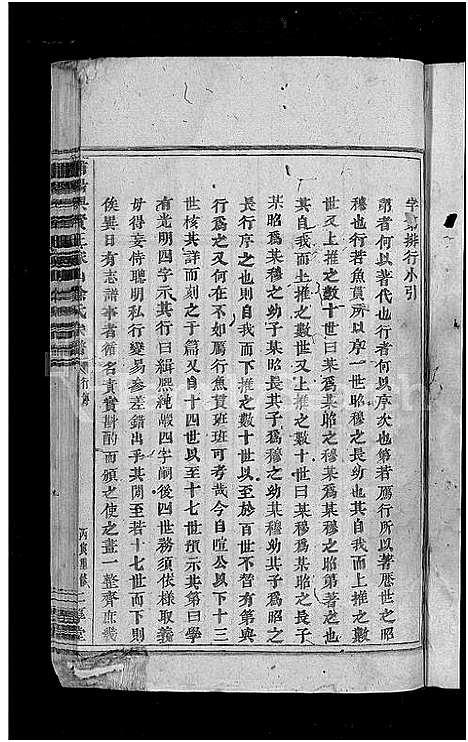 字第排行小引
第者何以著代也行者何以序次也第若鴈行所以著歷世之昭
穆也行若魚貫所以序一世昭穆之長幼也其自我而上推之數
世又上推之數十世曰某為某昭之穆某為某穆之昭第著之也
其自我而上推之數世又上推之數十世曰某穆為某昭之長子
某昭為某穆之幼子某昭長其子某穆之幼某穆幼其子為某昭之
長行序之也則自我而下推之數十世以至於百世不皆有第與
行為之又何在不如鴈行魚貫班班可考哉今自暄公以下十三
世核其詳而刻之于篇又自十四世以至十七世預示其第曰學
有光明四字示其行曰緝熙純嚴四字嗣後四世務須依樣取義
毋得妄恃聰明私行變易參差錯出乎其閒至若十七世而下則
俟異日有志譜事者循名責實斟酌而頒之使之畫一整齊庶幾
行第
丙寅重修